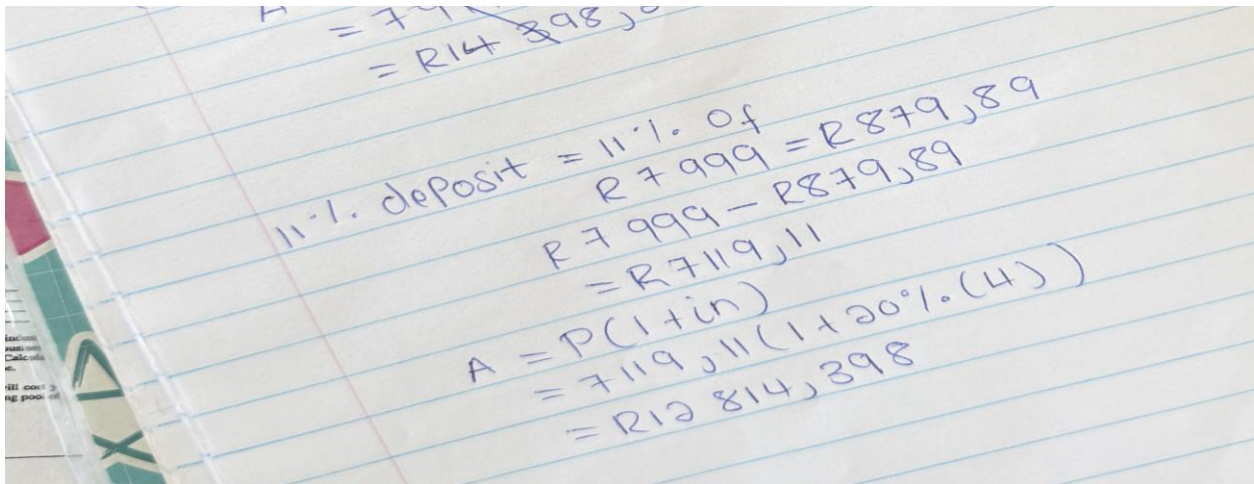 A
= R14 398,
11% deposit = 11% of
R7 999 = R879,89
R7 999 - R879,89
= R7119,11
A = P(1+in)
= 7119,11(1+20%(4))
= R12 814,398